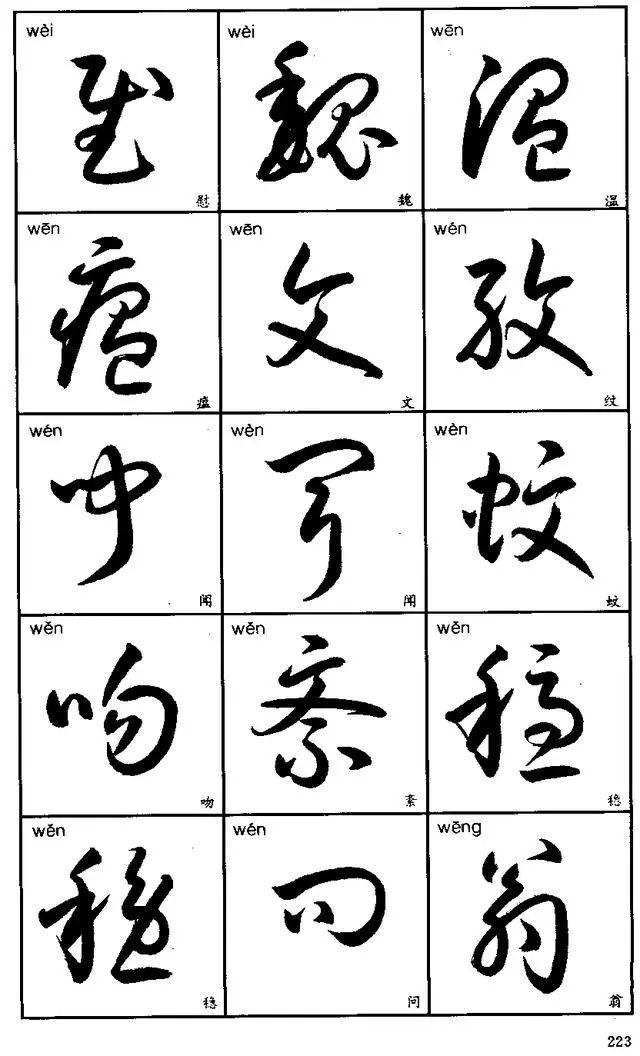 wèi wèi wēn
慰 魏 温
wēn wēn wén
瘟 文 纹
wén wèn wèn
闻 闻 蚊
wěn wěn wěn
吻 紊 稳
wěn wén wēng
稳 问 翁
223